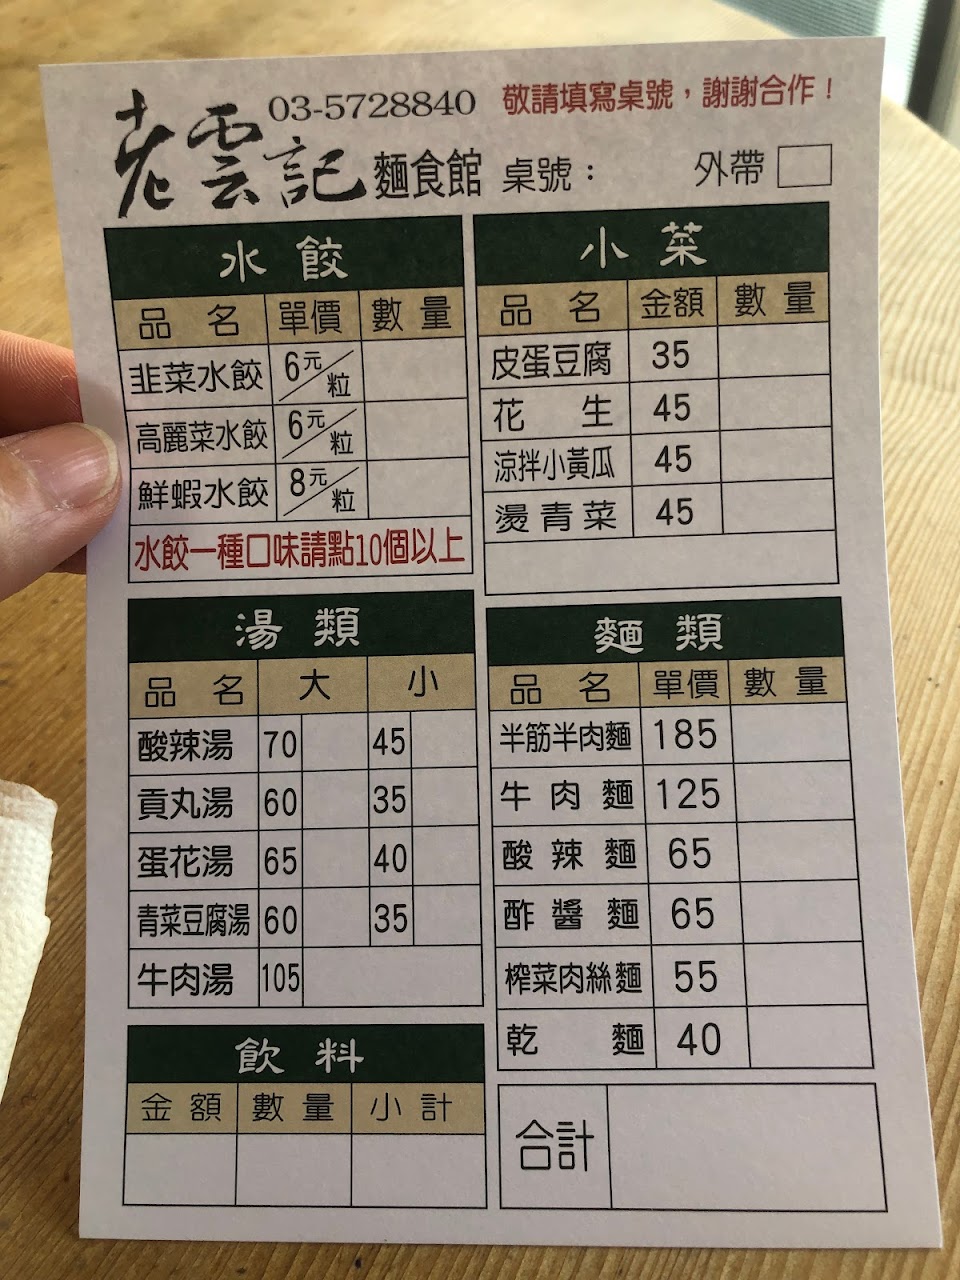 03-5728840 敬請填寫桌號，謝謝合作！
老雲記 麵食館 桌號： 外帶
水餃
品名 單價 數量
韭菜水餃 6元/粒
高麗菜水餃 6元/粒
鮮蝦水餃 8元/粒
水餃一種口味請點10個以上
小菜
品名 金額 數量
皮蛋豆腐 35
花生 45
涼拌小黃瓜 45
燙青菜 45
湯類
品名 大 小
酸辣湯 70 45
貢丸湯 60 35
蛋花湯 65 40
青菜豆腐湯 60 35
牛肉湯 105
麵類
品名 單價 數量
半筋半肉麵 185
牛肉麵 125
酸辣麵 65
酢醬麵 65
榨菜肉絲麵 55
乾麵 40
飲料
金額 數量 小計
合計